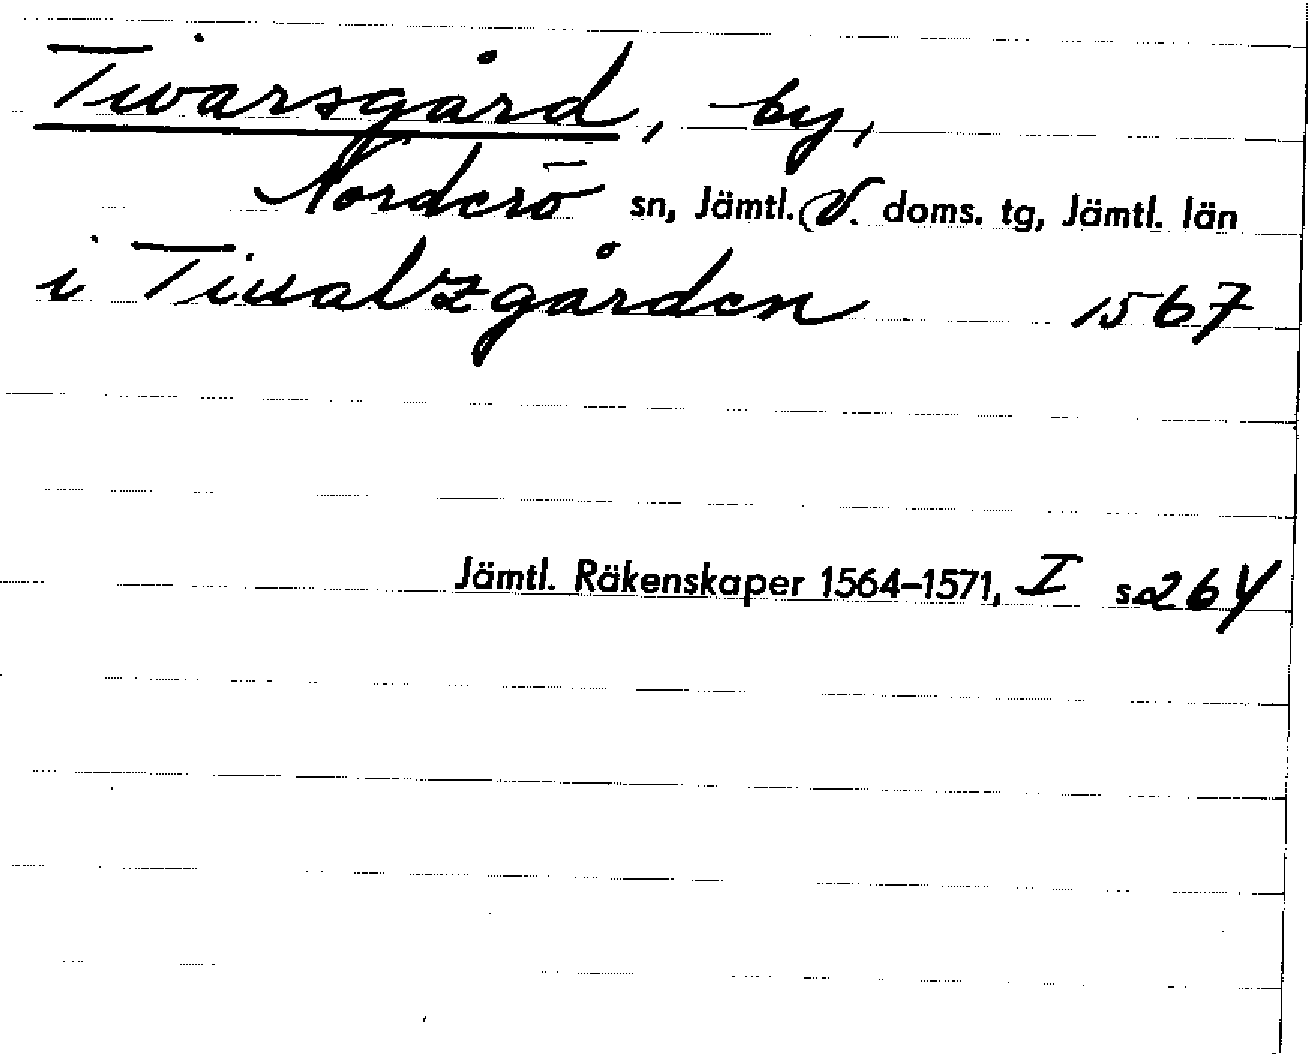 Tivarsgård, by,
Norderö sn, Jämtl. V. doms. tg, Jämtl. län
i Tiualzgården 1567
Jämtl. Räkenskaper 1564–1571, I s 264